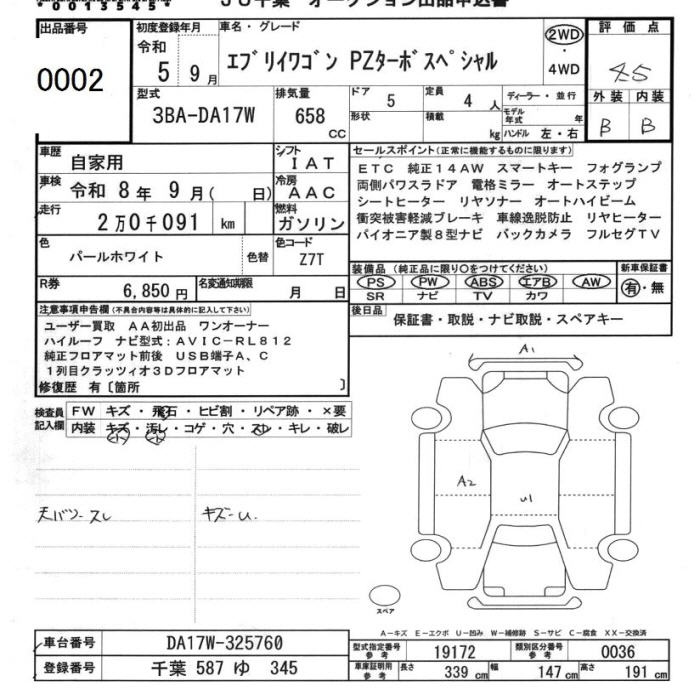 *00135454*
JU千葉 オークション出品申込書
出品番号
0002
初度登録年月
令和
5 9月
車名・グレード
エブリイワゴン PZターボスペシャル
2WD
・
4WD
評価点
4.5
外装 内装
B B
型式
3BA-DA17W
排気量
658
CC
ドア 5
定員 4 人
形状
積載 kg
ディーラー・並行
モデル年式 年
ハンドル 左・右
車歴
自家用
シフト
IAT
車検
令和 8年 9月( 日)
冷房
AAC
走行
2万0千091 km
燃料
ガソリン
色
パールホワイト
色替
色コード
Z7T
R券
6,850円
名変通知期限
月 日
セールスポイント(正常に機能するものに限ります)
ETC 純正14AW スマートキー フォグランプ
両側パワスラドア 電格ミラー オートステップ
シートヒーター リヤソナー オートハイビーム
衝突被害軽減ブレーキ 車線逸脱防止 リヤヒーター
パイオニア製8型ナビ バックカメラ フルセグTV
装備品(純正品に限り○をつけてください)
PS PW ABS エアB AW
SR ナビ TV カワ
新車保証書
有・無
後日品
保証書・取説・ナビ取説・スペアキー
注意事項申告欄(不具合内容等は具体的に記入して下さい)
ユーザー買取 AA初出品 ワンオーナー
ハイルーフ ナビ型式:AVIC-RL812
純正フロアマット前後 USB端子A、C
1列目クラッツィオ3Dフロアマット
修復歴 有〔箇所 〕
検査員記入欄
FW キズ・飛石・ヒビ割・リペア跡・×要
内装 キズ・汚レ・コゲ・穴・スレ・キレ・破レ
小 小
天バリースレ
キズ-U.
A1
A2
U1
スペア
A-キズ E-エクボ U-凹み W-補修跡 S-サビ C-腐食 XX-交換済
車台番号
DA17W-325760
登録番号
千葉 587 ゆ 345
型式指定番号
参考
19172
類別区分番号
参考
0036
車庫証明用
参考
長さ 339 cm
幅 147 cm
高さ 191 cm